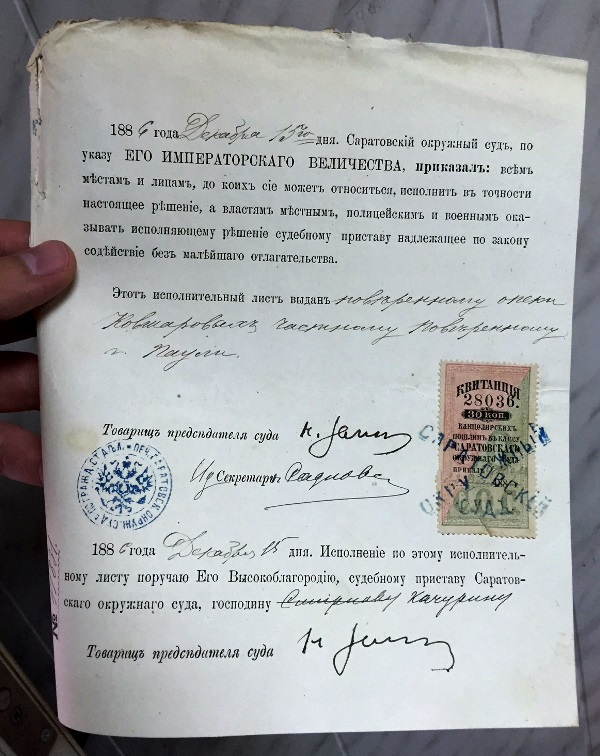 1886 года Декабря 15го дня. Саратовскій окружный судъ, по
указу ЕГО ИМПЕРАТОРСКАГО ВЕЛИЧЕСТВА, приказалъ: всѣмъ
мѣстамъ и лицамъ, до коихъ сіе можетъ относиться, исполнить въ точности
настоящее рѣшеніе, а властямъ мѣстнымъ, полицейскимъ и военнымъ ока-
зывать исполняющему рѣшеніе судебному приставу надлежащее по закону
содѣйствіе безъ малѣйшаго отлагательства.
Этотъ исполнительный листъ выданъ повѣренному опеки
частному повѣренному
г. Паули.
КВИТАНЦІЯ
28036.
30 КОП.
КАНЦЕЛЯРСКИХЪ
САРАТОВСКАГО
САРАТОВСКІЙ
СУДЪ
Товарищъ предсѣдателя суда
Ид Секретаря
1886 года Декабря 15 дня. Исполненіе по этому исполнитель-
ному листу поручаю Его Высокоблагородію, судебному приставу Саратов-
скаго окружнаго суда, господину Смирнову Качурину
Товарищъ предсѣдателя суда
№